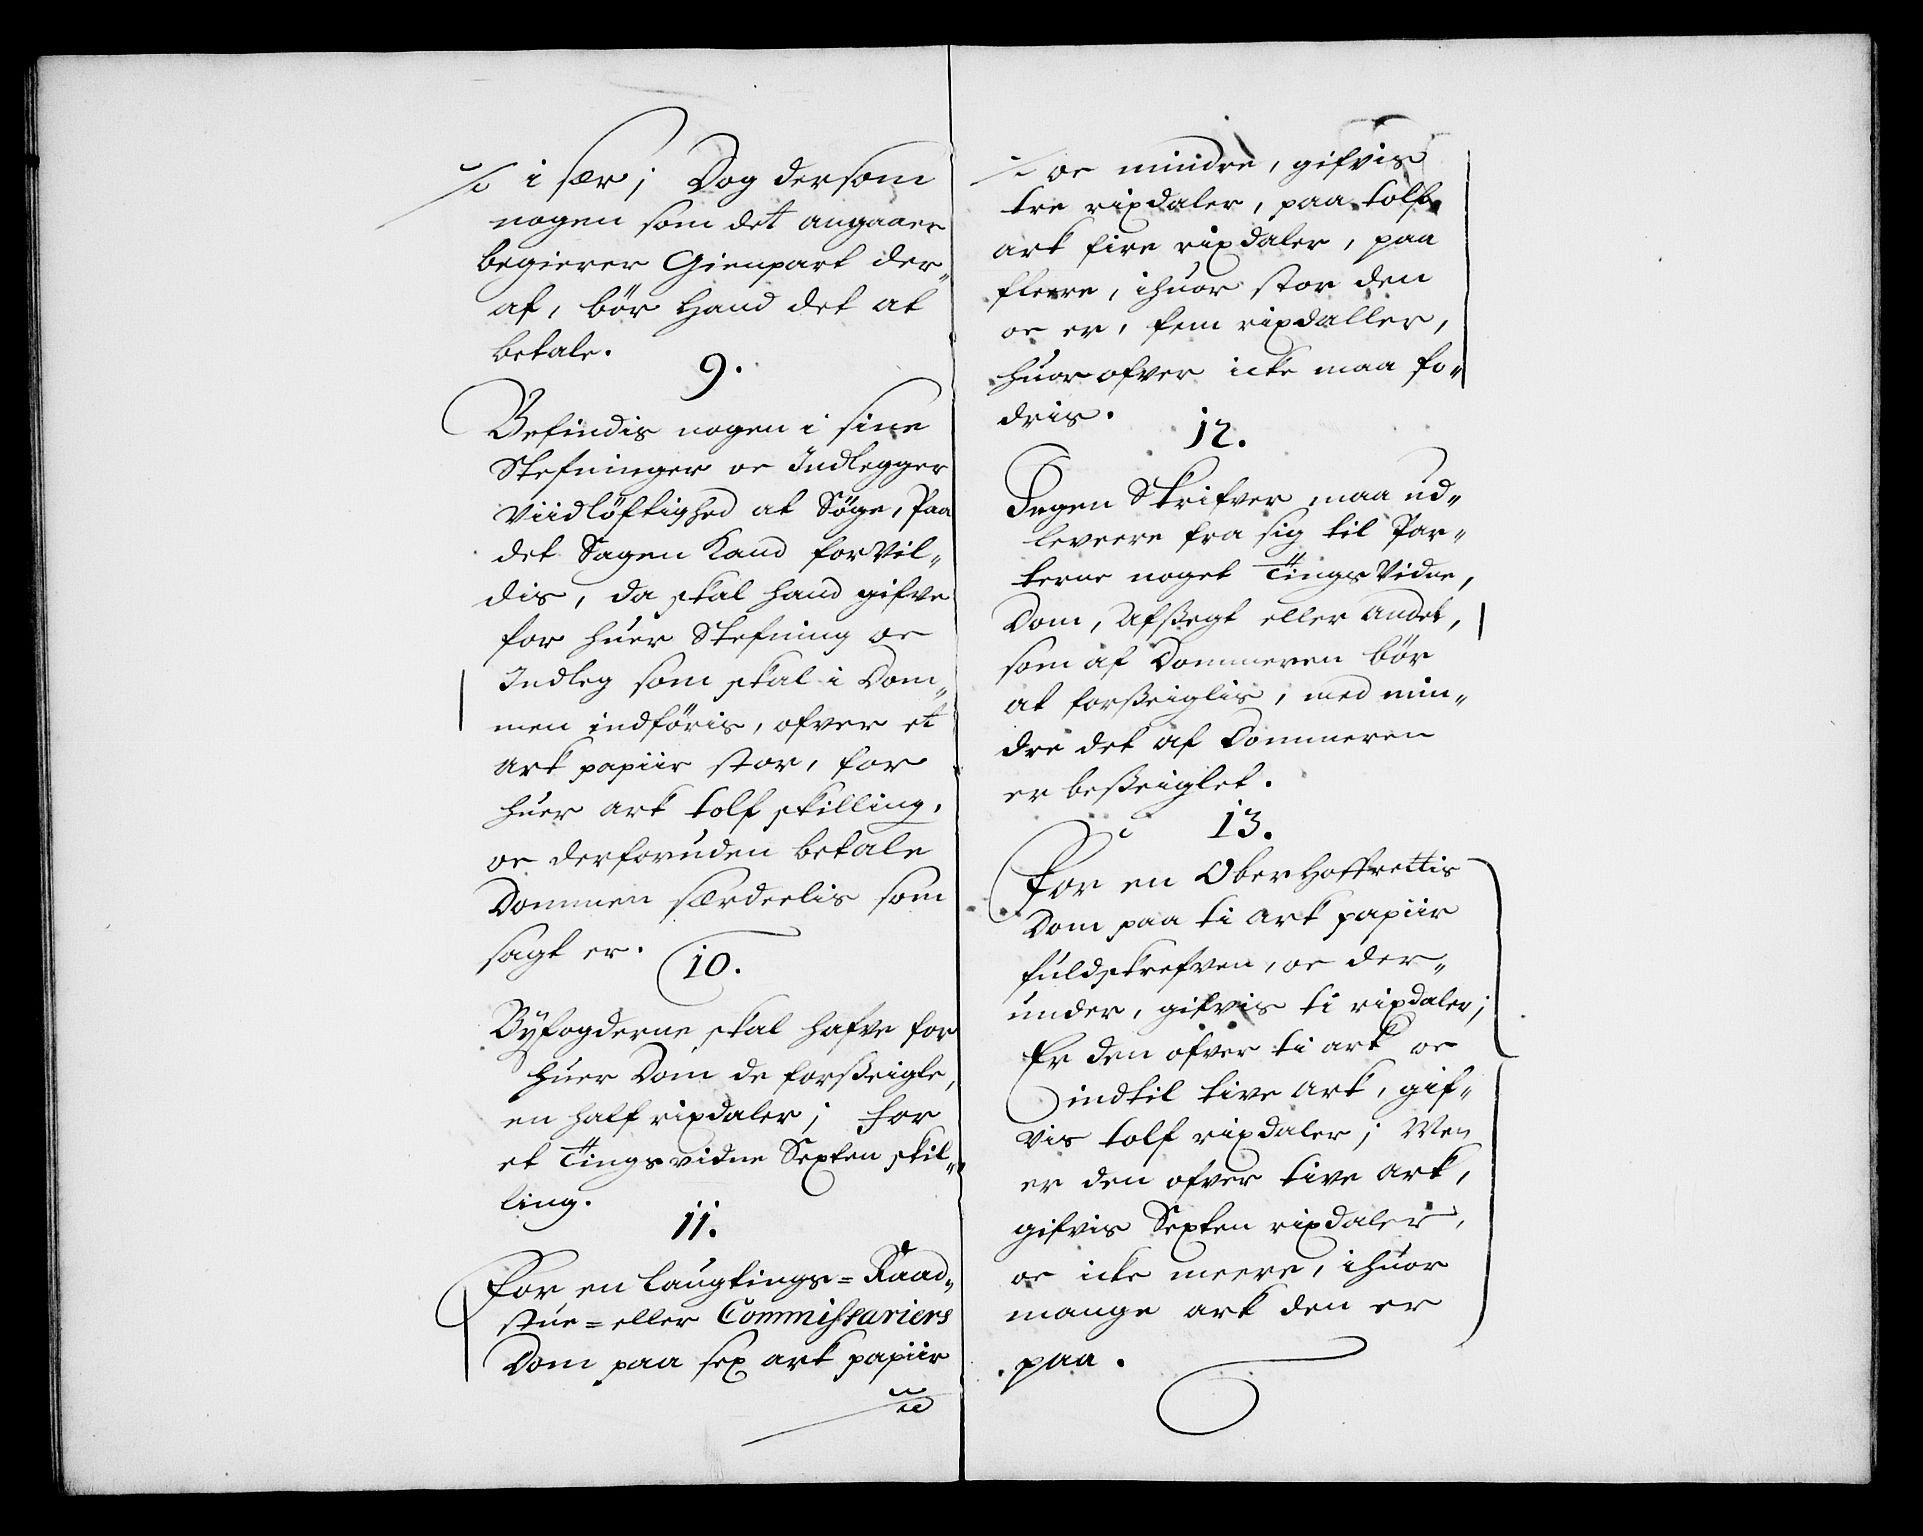 i sær; Dog dersom
nogen som det angaaer
begierer Gienpart der„
af, bør hand det at
betale.
9.
Befindis nogen i sine
Stefninger oc Indlegger
Viidløftighed at Søge, Paa
det Sagen Kand forVil„
dis, da skal hand gifve
for huer Stefning oc
Indleg som skal i Dom„
men indføris, ofver et
Ark papiir stor, for
huer ark tolf skilling,
oc derforuden betale
Dommen særdeelis som
sagt er.
10.
Byfogderne skal hafve for
huer Dom de forsseigle,
en half rixdaler; for
et Tingsvidne Sexten skil„
ling.
11.
For en Laugtings= Raad„
stue= eller Commissariers
Dom paa sex ark papiir
oc mindre, gifvis
tre rixdaler, paa tolf
ark fire rixdaler, paa
fleere, ihuor stor den
oc er, fem rixdaller,
huorofver icke maa fo„
dris.
12.
Ingen Skrifver maa ud„
leveere fra sig til Par„
terne noget TingsVidne,
Dom, Afssegt eller andet,
som af Dommeren bør
at forsseiglis, med min„
dre det af Dommeren
er besseiglet.
13.
For en OberHoffrettis
Dom paa ti ark papiir
fuldskrefven, oc der„
under, gifvis ti rixdaler;
Er den ofver ti ark oc
indtil tive Ark, gif„
vis tolf rixdaler; Men
er den ofver tive Ark,
gifvis Sexten rixdaler,
oc icke meere, ihuor
mange ark den er
paa.